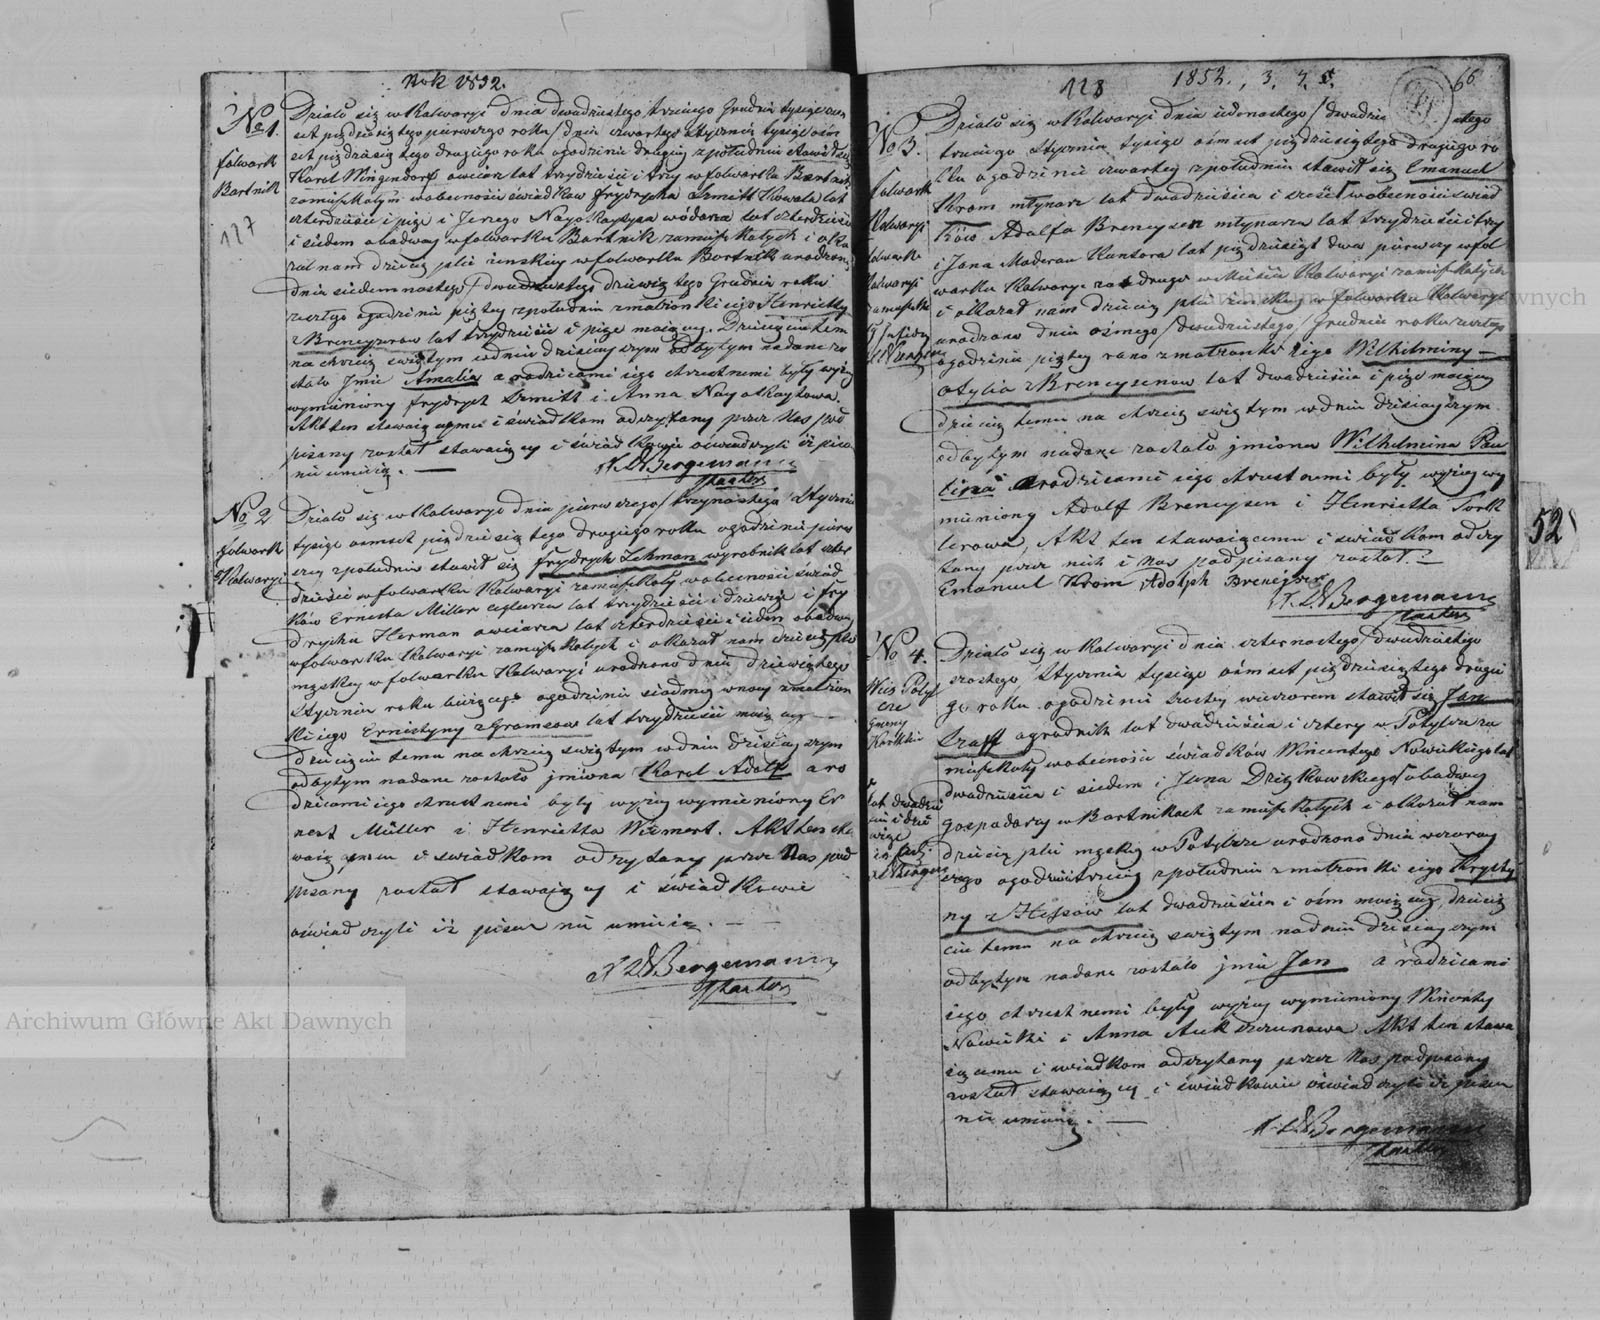 Rok 1852.
No 1.
folwark
Bartnik
127
Działo się w Kalwaryi dnia dwudziestego trzeciego Grudnia tysiąc osm
set pięćdziesiątego pierwszego roku / dnia czwartego Stycznia tysiąc ośm
set pięćdziesiątego drugiego roku o godzinie drugiej z południa stawił się
Karol Wingendorf owczarz lat trzydzieści i trzy w folwarku Bartnik
zamieszkały w obecności świadków Frydrycha Szmitt Kowala lat
czterdzieści i pięć i Jerzego włodarza lat czterdzieści
i siedem obadwaj w folwarku Bartnik zamieszkałych i oka
zał nam dziecię płci żeńskiej w folwarku Bartnik urodzone
dnia siedemnastego / dwudziestego dziewiątego Grudnia roku
zeszłego o godzinie piątej z południa z małżonki jego Henrietty
z Breneyzerow lat trzydzieści i pięć mającej. Dziecięciu temu
na chrzcie świętym w dniu dzisiejszym odbytym nadane zo
stało Imie Amalia a rodzicami jego chrzestnemi byli wyżej
wymieniony Frydrych Szmitt i Anna
Akt ten stawającemu i świadkom odczytany przez Nas pod
pisany został stawający i świadkowie oświadczyli iż pisać
nie umieją.
Bergemann
Pastor
No 2
folwark
Kalwaryi
Działo się w Kalwaryi dnia pierwszego / trzynastego / Stycznia
tysiąc osmset pięćdziesiątego drugiego roku o godzinie pierw
szej z południa stawił się Frydrych Lehman wyrobnik lat czter
dzieści w folwarku Kalwaryi zamieszkały w obecności świad
ków Ernesta Miller ceglarza lat trzydzieści i dziewięć i Fry
drycha Herman owczarza lat czterdzieści i siedem obadwaj
w folwarku Kalwaryi zamieszkałych i okazał nam dziecię płci
męskiej w folwarku Kalwaryi urodzone dnia dziewiątego
Stycznia roku bieżącego o godzinie siódmej w nocy z małżon
ki jego Ernistyny z Gramsow lat trzydzieści mającej
Dziecięciu temu na chrzcie świętym w dniu dzisiejszym
odbytym nadane zostało imiona Karol Adolf a ro
dzicami jego chrzestnemi byli wyżej wymieniony Er
nest Müller i Henrietta Wiemert. Akt ten sta
wającemu i świadkom odczytany przez Nas pod
pisany został stawający i świadkowie
oświadczyli iż pisać nie umieją.
Bergemann
Pastor
128
1852., 3. 4. 5.
66
No 3.
folwark
Kalwaryi
Działo się w Kalwaryi dnia iedenastego / dwudzie stego
trzeciego Stycznia tysiąc ośmset pięćdziesiątego drugiego ro
ku o godzinie czwartej z południa stawił się Emanuel
Krom młynarz lat dwadzieścia i sześć w obecności świad
ków Adolfa Breneysen młynarza lat trzydzieści i trzy
i Jana Maderau Kantora lat pięćdziesiąt dwa pierwszy w fol
warku Kalwaryi zaś drugi w Mieście Kalwaryi zamieszkałych
i okazał nam dziecię płci żeńskiej w folwarku Kalwaryi
urodzone dnia osmego / dwudziestego / Grudnia roku zeszłego
o godzinie piątej rano z małżonki jego Wilhelminy
Otylia z Breneysenow lat dwadzieścia i pięć mającej
Dziecięciu temu na chrzcie świętym w dniu dzisiejszym
odbytym nadane zostało imiona Wilhelmina Pau
lina a rodzicami jego chrzestnemi byli wyżej wy
mieniony Adolf Breneysen i Henrietta Tork
lerowa, Akt ten stawającemu i świadkom odczy
tany przez nich i Nas podpisany został.
Emanuel Krom Adolph Breneiser
Bergemann
Pastor
52
No 4.
Wieś Potył
cze
Gminy
Działo się w Kalwaryi dnia czternastego / dwudziestego
szóstego Stycznia tysiąc ośmset pięćdziesiątego drugie
go roku o godzinie szóstej wieczorem stawił się Jan
Szaff ogrodnik lat dwadzieścia i cztery w Potylczu za
mieszkały w obecności świadków Wincentego Nowickiego lat
dwadzieścia i siedem i Jana Dziękowskiego obadwaj
gospodarzy w Bartnikach zamieszkałych i okazał nam
dziecię płci męskiej w Potylcze urodzone dnia wczoraj
szego o godzinie trzeciej z południa z małżonki jego Krysty
ny z Hessow lat dwadzieścia i ośm mającej, dziecię
ciu temu na chrzcie świętym na dniu dzisiejszym
odbytym nadane zostało imie Jan a rodzicami
jego chrzestnemi byli wyżej wymieniony Wincenty
Nowicki i Anna Akt ten stawa
jącemu i świadkom odczytany przez Nas podpisany
został stawający i świadkowie oświadczyli iż pisać
nie umieją.
Bergemann
Pastor
Archiwum Główne Akt Dawnych